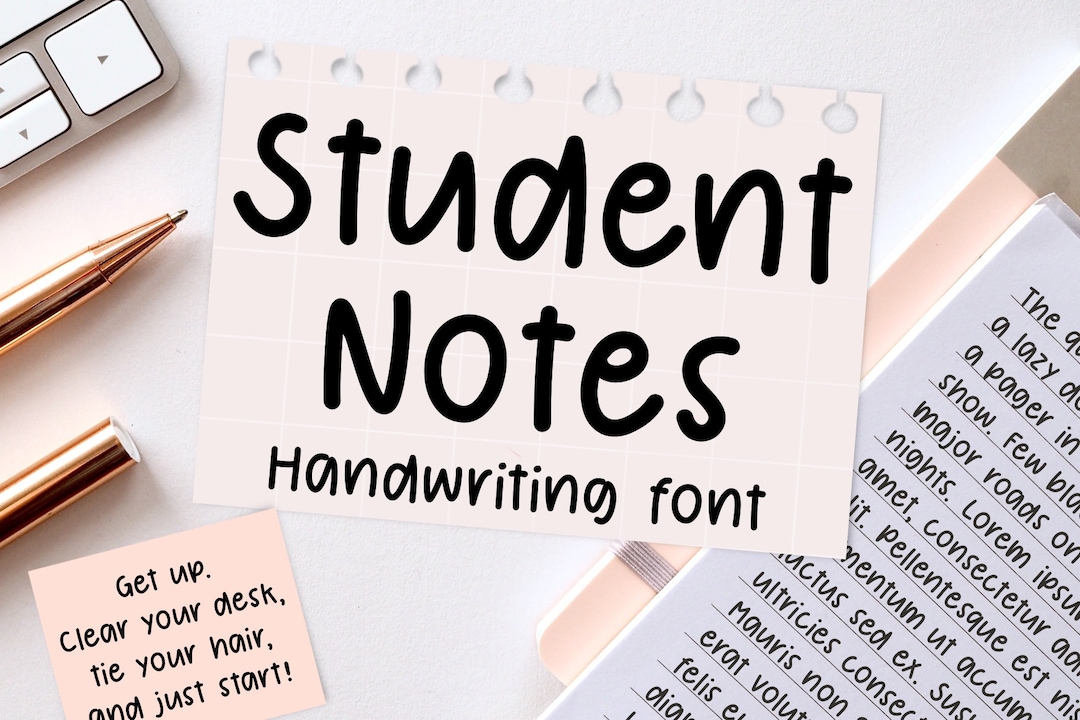 Student
Notes
Handwriting font
Get up.
Clear your desk,
tie your hair,
and just start!
The
a lazy
a pager in
show. Few
major roads
nights. Lorem ipsu
amet, consectetur
pellentesque est
mentum ut accum
luctus sed ex. Sus
ultricies consec
Mauris non
erat volut
felis